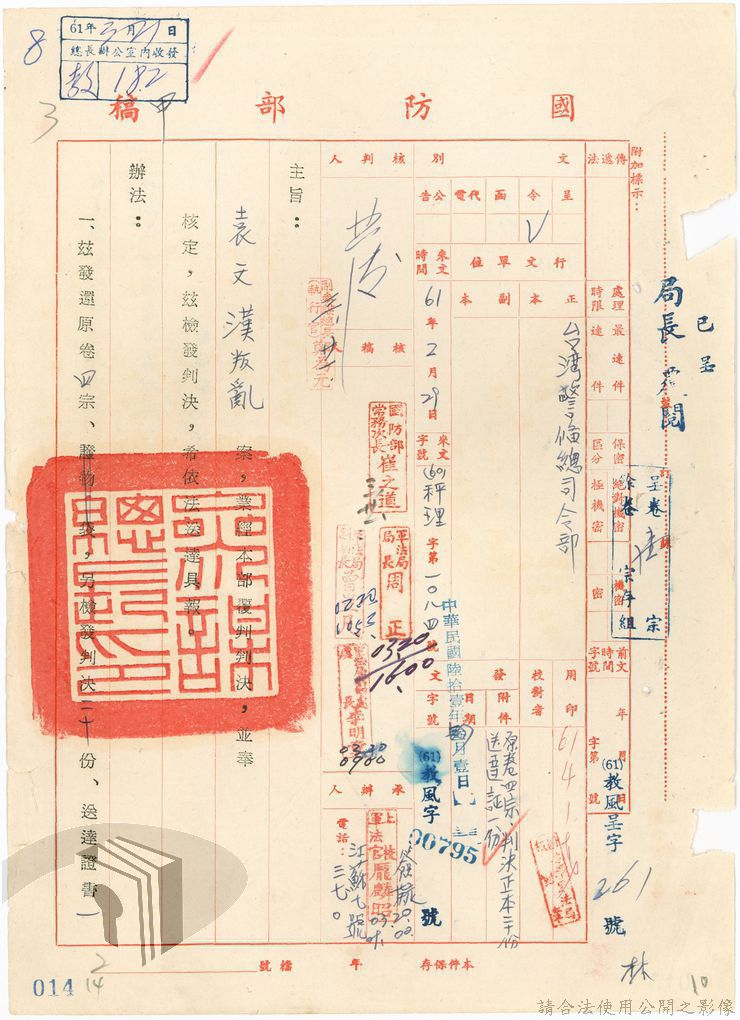 61年3月21日
總長辦公室內收發
教 182
8
3
國防部稿
甲
附加標示：
傳遞法
文別
呈
令
函
代電
公告
V
處理時限
最速件
速件
行文單位
正本
副本
台灣警備總司令部
來文時間
61年2月29日
保密區分
絕對機密
極機密
機密
密
來文字號
(60)秤理字第一〇八四號
前文時間
年 月 日
字號
字第 號
(61)教風呈字261號
已呈
局長
閱
呈卷 宗
餘卷 宗
年 組
用印
61 4 1
校對者
發文
附件
原卷四宗、判決正本二十份
送達證一份
日期
中華民國陸拾壹年四月壹日
字號
(61)教風字
00795
號
核判人
核稿人
副參謀總長
執行官
國防部
常務次長 崔之道
軍法局
局長 周正
0320
1600
承辦人
上校
軍法官 龐麟照
電話：
江蘇七號
三七〇
主旨：
袁文漢叛亂案，業經本部覆判判決，並奉
核定，茲檢發判決，希依法送達具報。
辦法：
一、茲發還原卷四宗、證物一袋，另檢發判決二十份、送達證書一
本件保存 年 檔號
林
10
014
2
14
請合法使用公開之影像